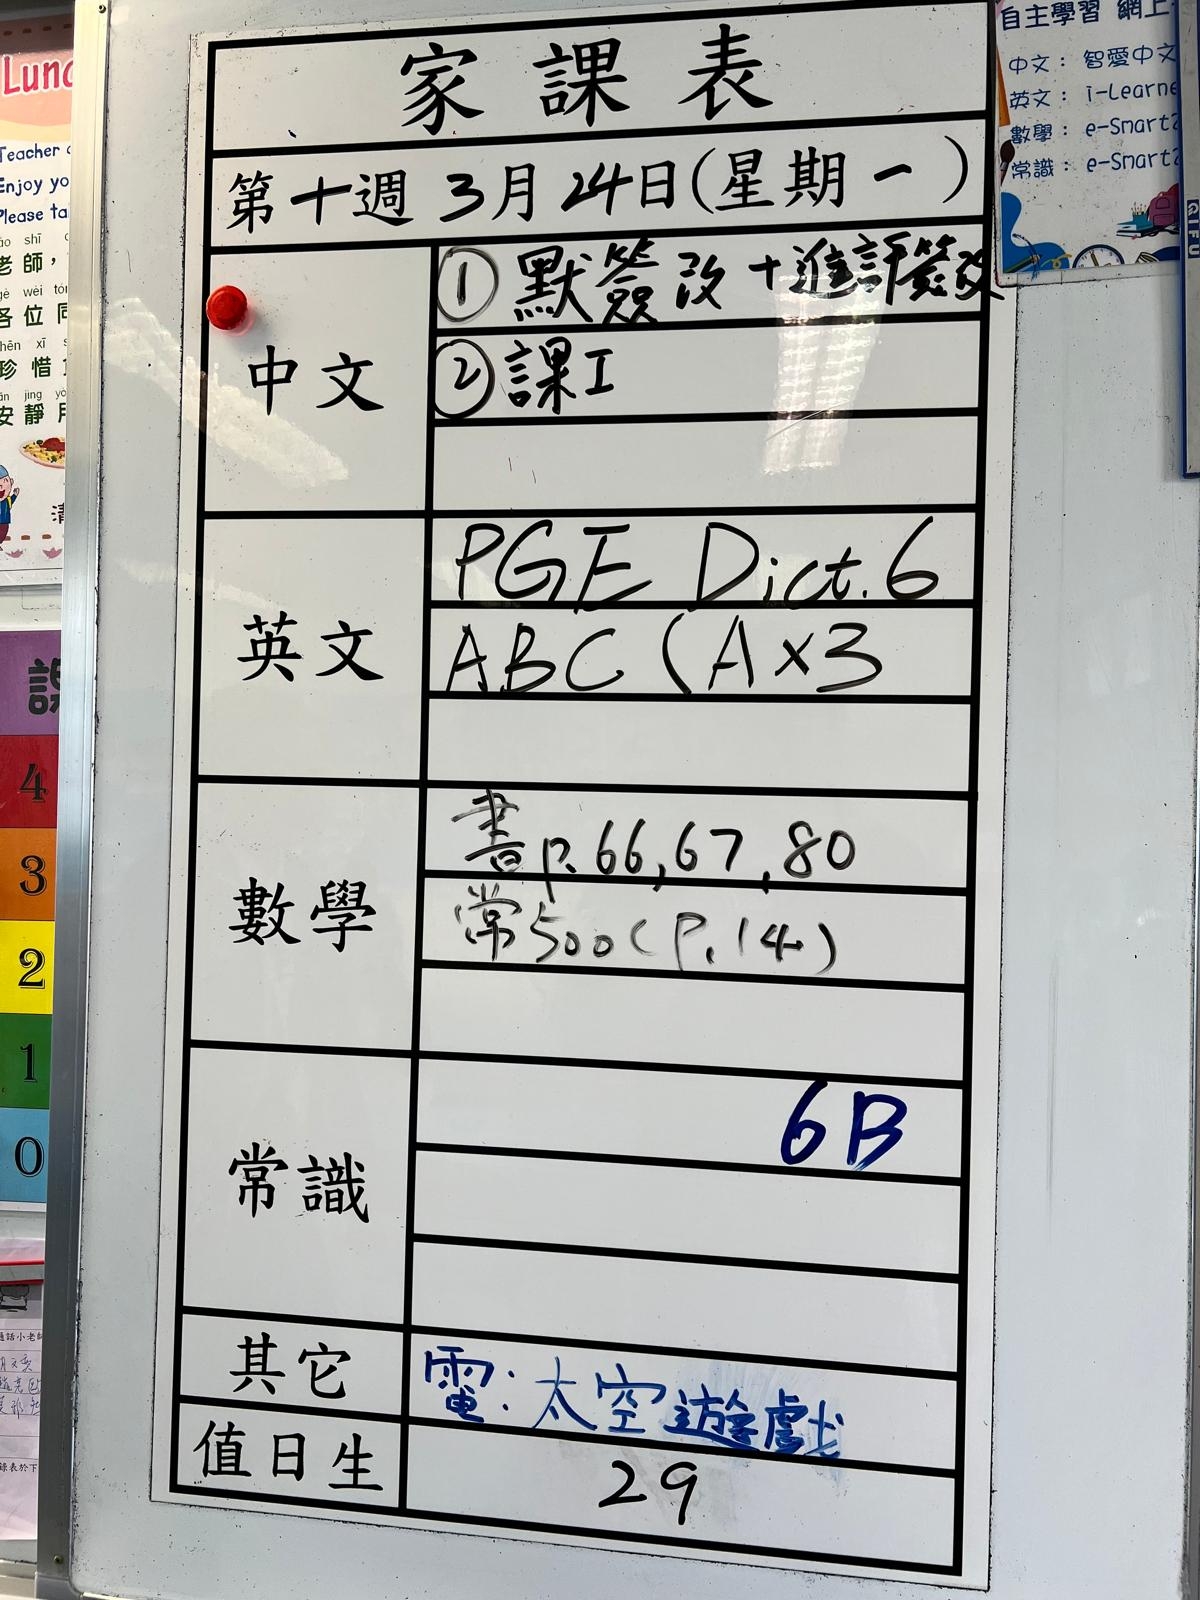 家課表
第十週 3月24日(星期一)
中文
① 默簽改+進評簽改
② 課工
英文
PGE Dict.6
ABC (A×3
數學
書p.66,67,80
常500(P.14)
常識
6B
其它
電:太空遊戲
值日生
29
自主學習 網上
中文: 智愛中文
英文: i-Learne
數學: e-Smart
常識: e-Smart
Lun
Teacher
Enjoy yo
Please ta
ǎo shī
老師,
gè wèi tón
各位同
hēn xī
珍惜
ān jìng yò
安靜用
4
3
2
1
0